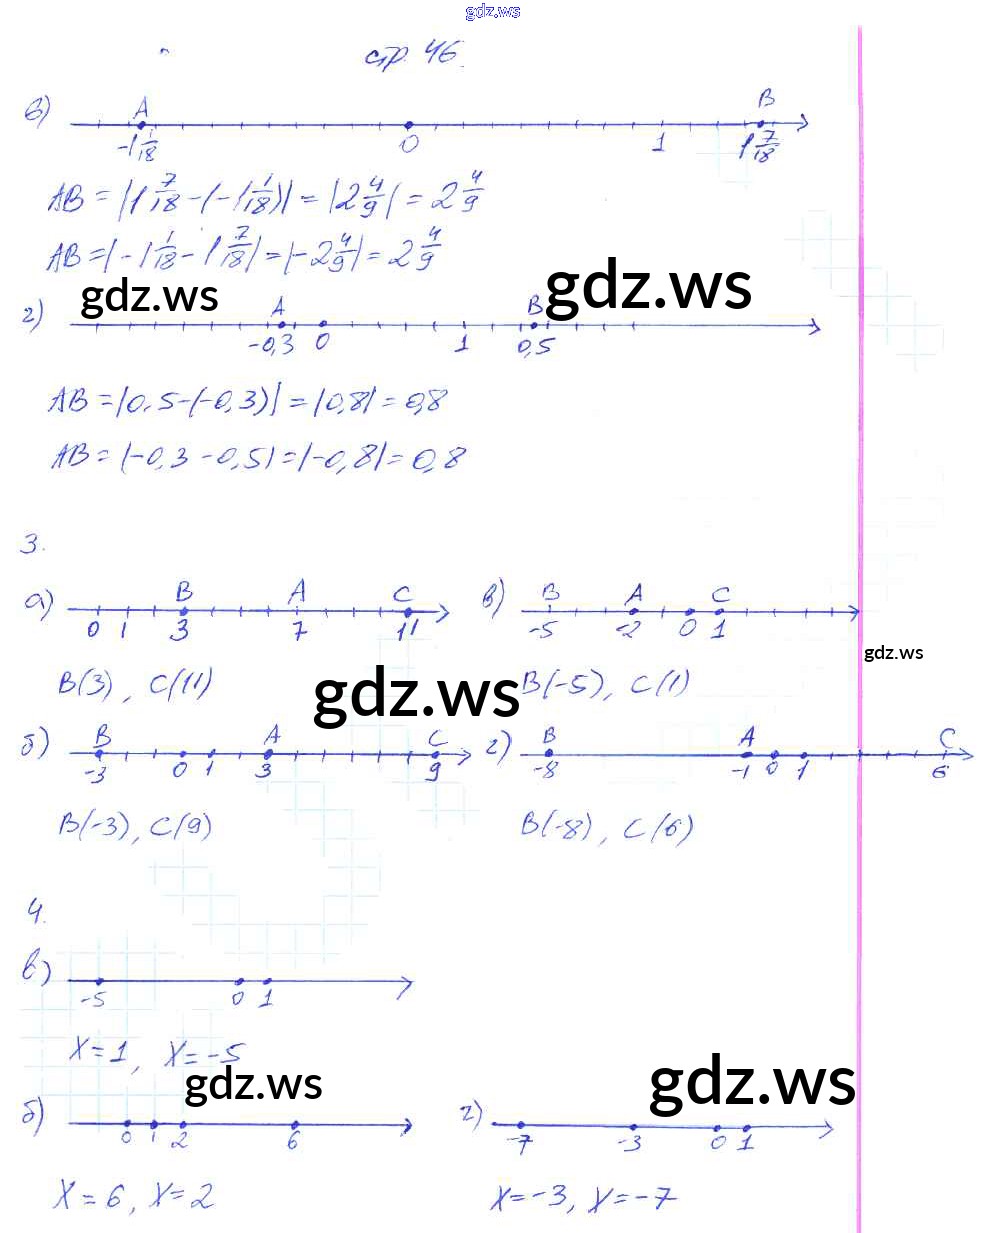 gdz.ws
стр. 46.
в)
A B
-1 1/18 0 1 1 7/18
AB = |1 7/18 - (-1 1/18)| = |2 4/9| = 2 4/9
AB = |-1 1/18 - 1 7/18| = |-2 4/9| = 2 4/9
gdz.ws gdz.ws
г)
A B
-0,3 0 1 0,5
AB = |0,5-(-0,3)| = |0,8| = 0,8
AB = |-0,3-0,5| = |-0,8| = 0,8
3.
а) B A C
0 1 3 7 11
B(3), C(11)
в) B A C
-5 -2 0 1
B(-5), C(1)
gdz.ws
gdz.ws
б) B A C
-3 0 1 3 9
B(-3), C(9)
г) B A C
-8 -1 0 1 6
B(-8), C(6)
4.
в)
-5 0 1
X=1, X=-5
gdz.ws gdz.ws
б)
0 1 2 6
X=6, X=2
г)
-7 -3 0 1
X=-3, X=-7